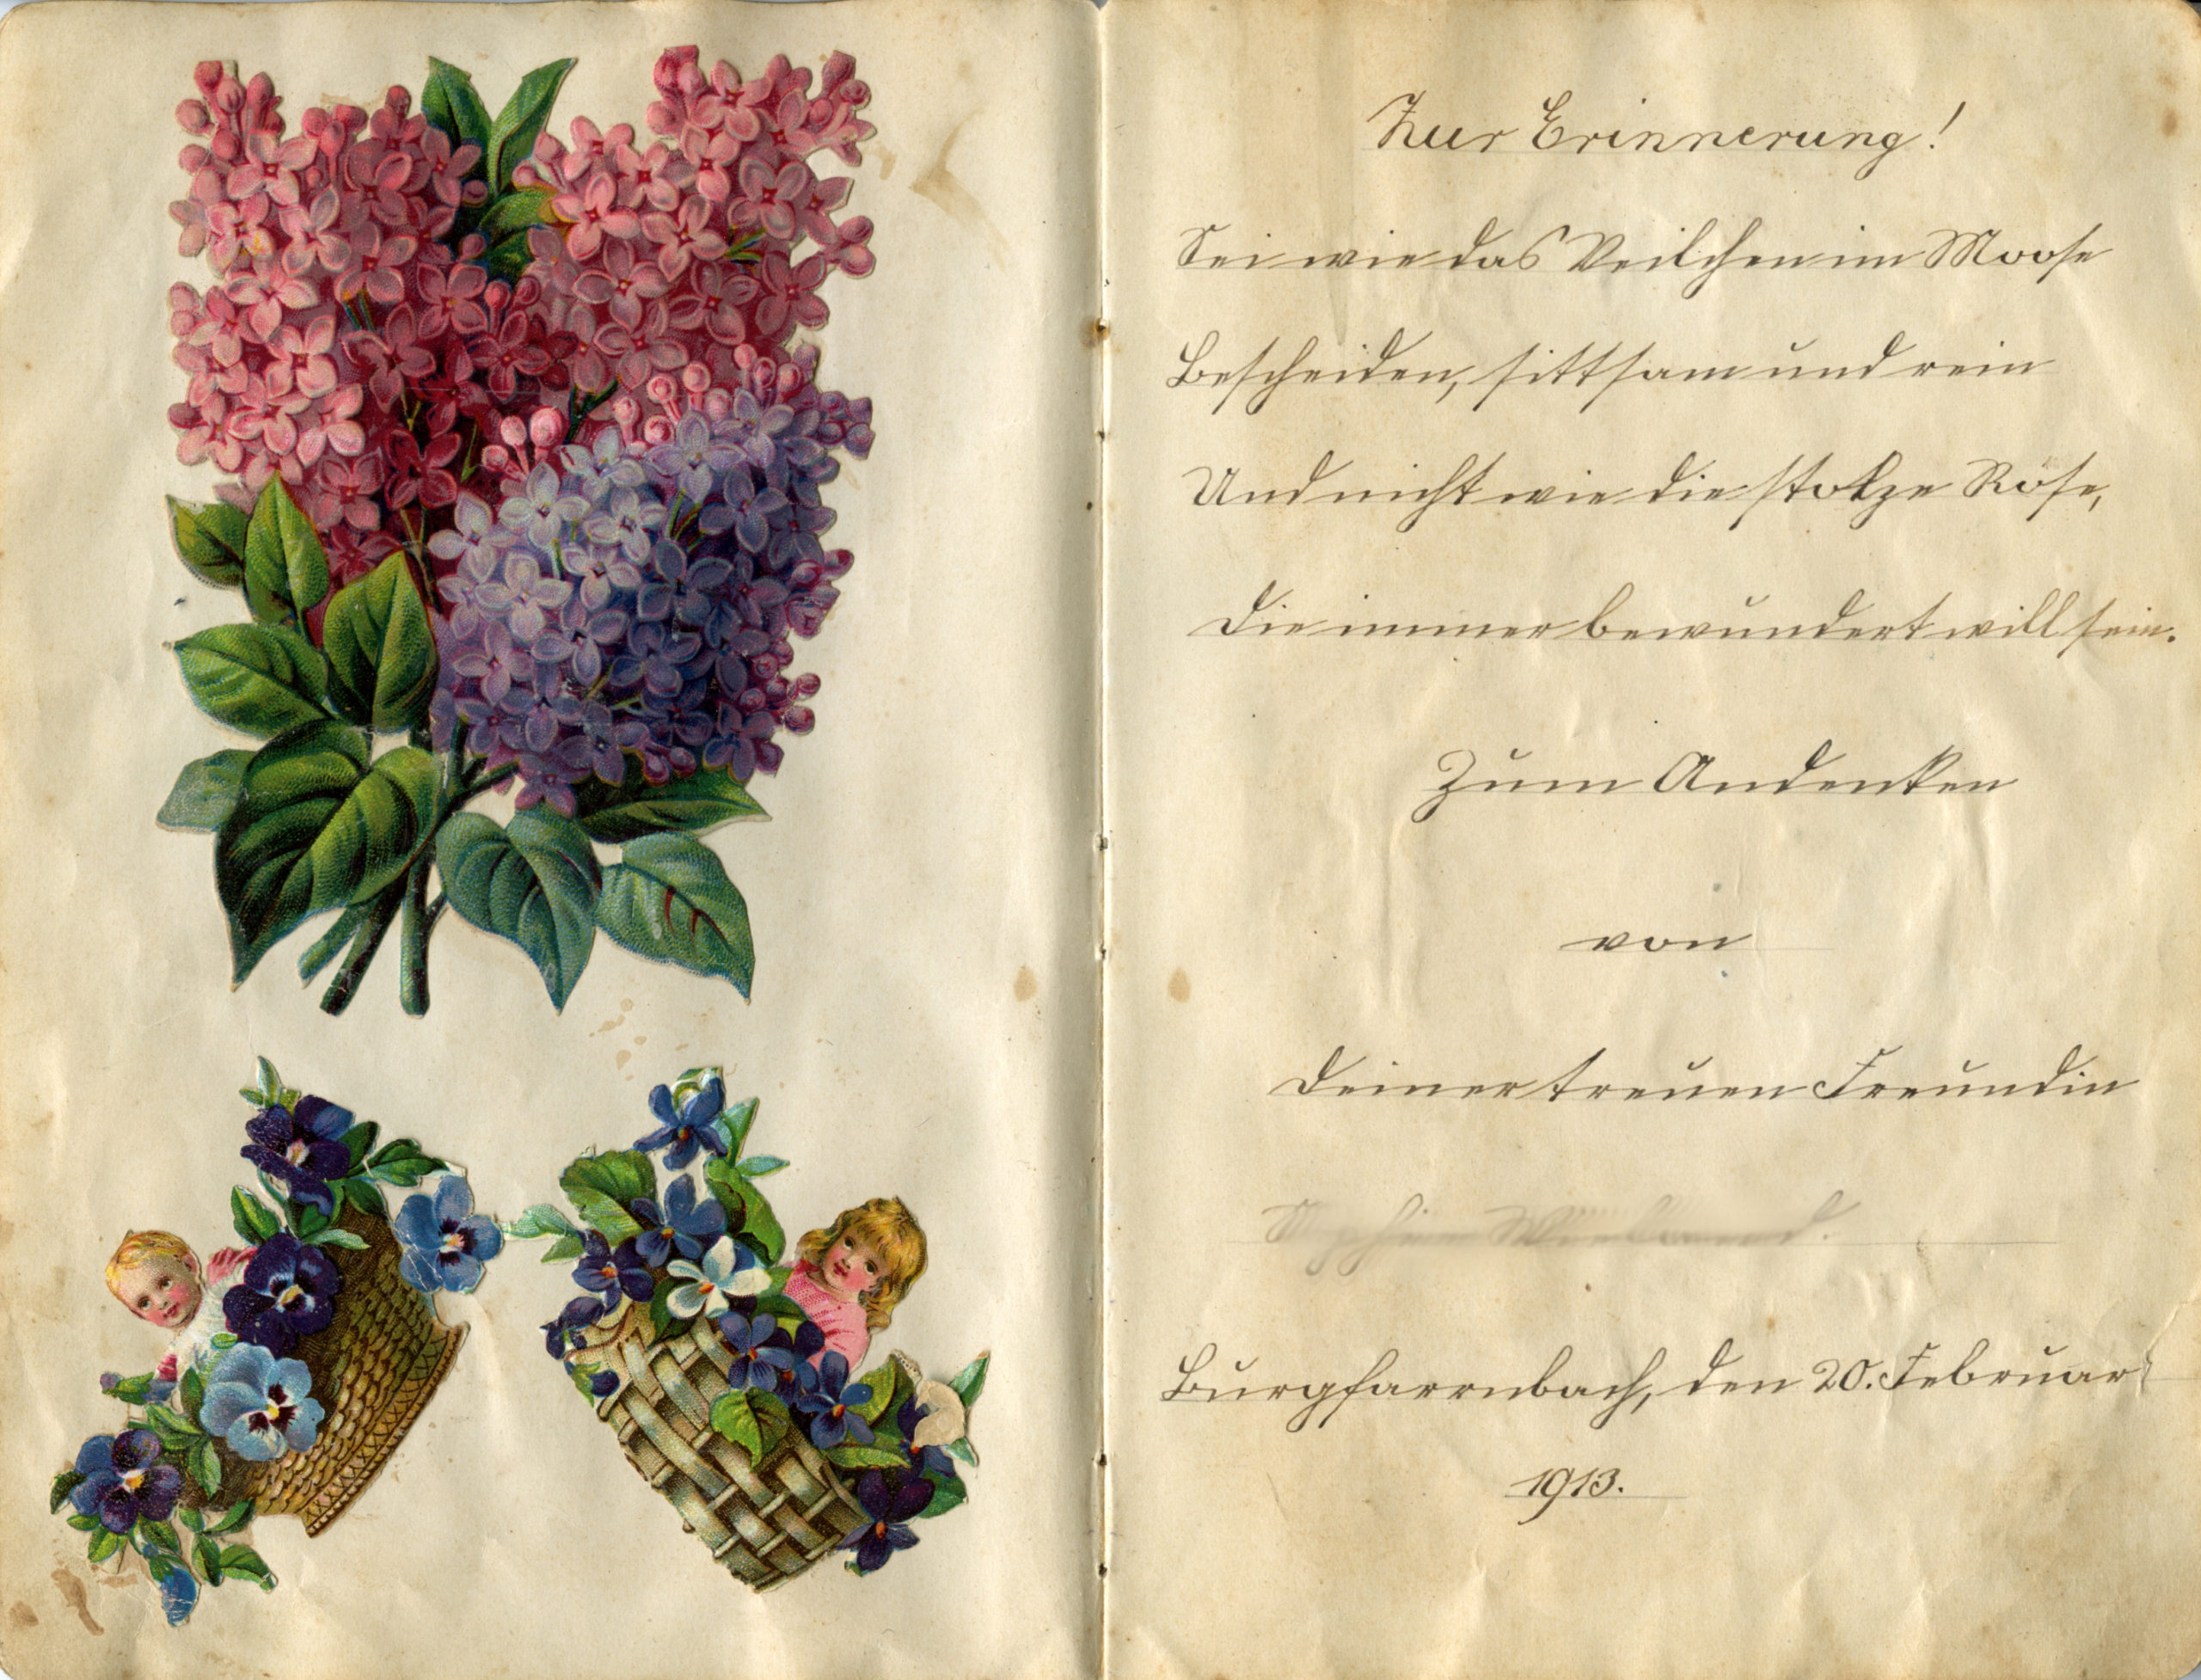 Zur Erinnerung!
Sei wie das Veilchen im Moose
Bescheiden, sittsam und rein
Und nicht wie die stolze Rose,
Die immer bewundert will sein.
Zum Andenken
von
Deiner treuen Freundin
Burgfarrnbach, den 20. Februar
1913.